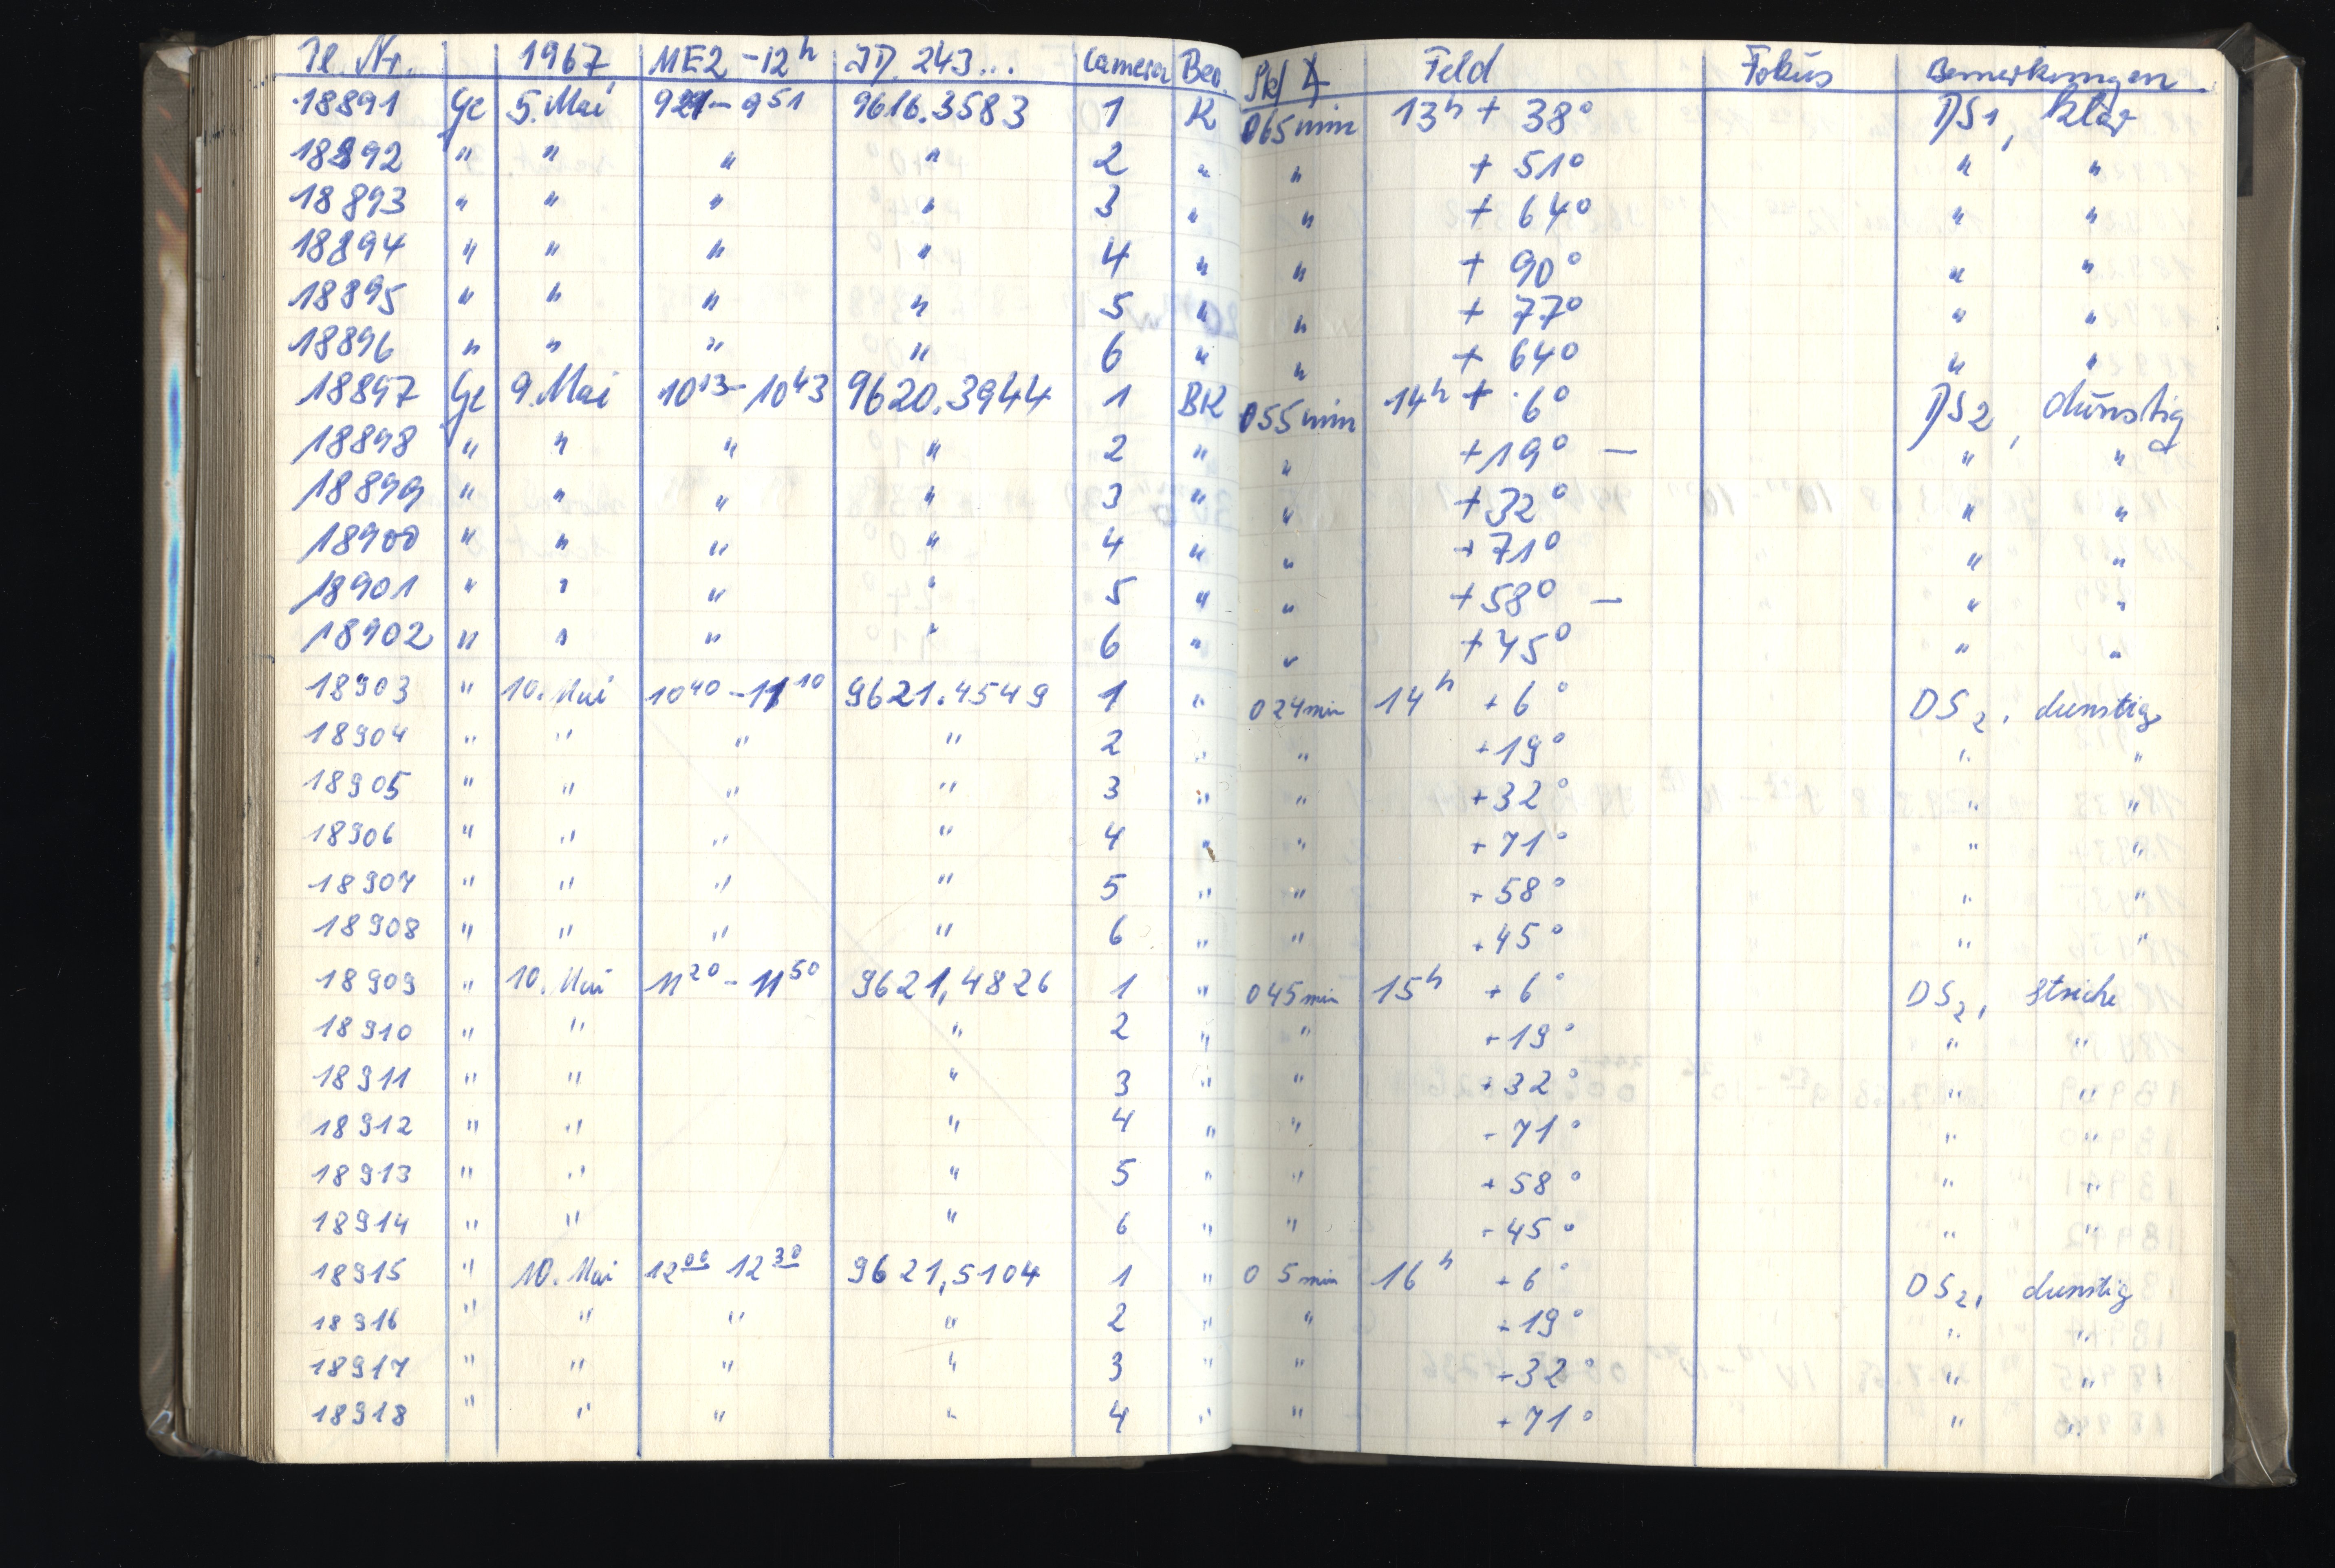 Pl. Nr. 1967 MEZ -12h J.D. 243... Camera Beo. Feld Fokus Bemerkungen
18891 Ge 5. Mai 9 21 - 9 51 9616.3583 1 K 065 min 13h + 38° DS1, klar
18892 " " " " 2 " " + 51° " "
18893 " " " " 3 " " + 64° " "
18894 " " " " 4 " " + 90° " "
18895 " " " " 5 " " + 77° " "
18896 " " " " 6 " " + 64° " "
18897 Ge 9. Mai 10 13 - 10 43 9620.3944 1 BK 055 min 14h + 6° DS2, dunstig
18898 " " " " 2 " " +19° — " "
18899 " " " " 3 " " +32° " "
18900 " " " " 4 " " +71° " "
18901 " " " " 5 " " +58° — " "
18902 " " " " 6 " " +45° " "
18903 " 10. Mai 10 40 - 11 10 9621.4549 1 " 024 min 14h + 6° DS2, dunstig
18904 " " " " 2 " " +19° " "
18905 " " " " 3 " " +32° " "
18906 " " " " 4 " " +71° " "
18907 " " " " 5 " " +58° " "
18908 " " " " 6 " " +45° " "
18909 " 10. Mai 11 20 - 11 50 9621,4826 1 " 045 min 15h + 6° DS2, Striche
18910 " " " 2 " " +19° " "
18911 " " " 3 " " +32° " "
18912 " " " 4 " " +71° " "
18913 " " " 5 " " +58° " "
18914 " " " 6 " " +45° " "
18915 " 10. Mai 12 00 12 30 9621,5104 1 " 0 5 min 16h + 6° DS2, dunstig
18916 " " " " 2 " " +19° " "
18917 " " " " 3 " " +32° " "
18918 " " " " 4 " " +71° " "